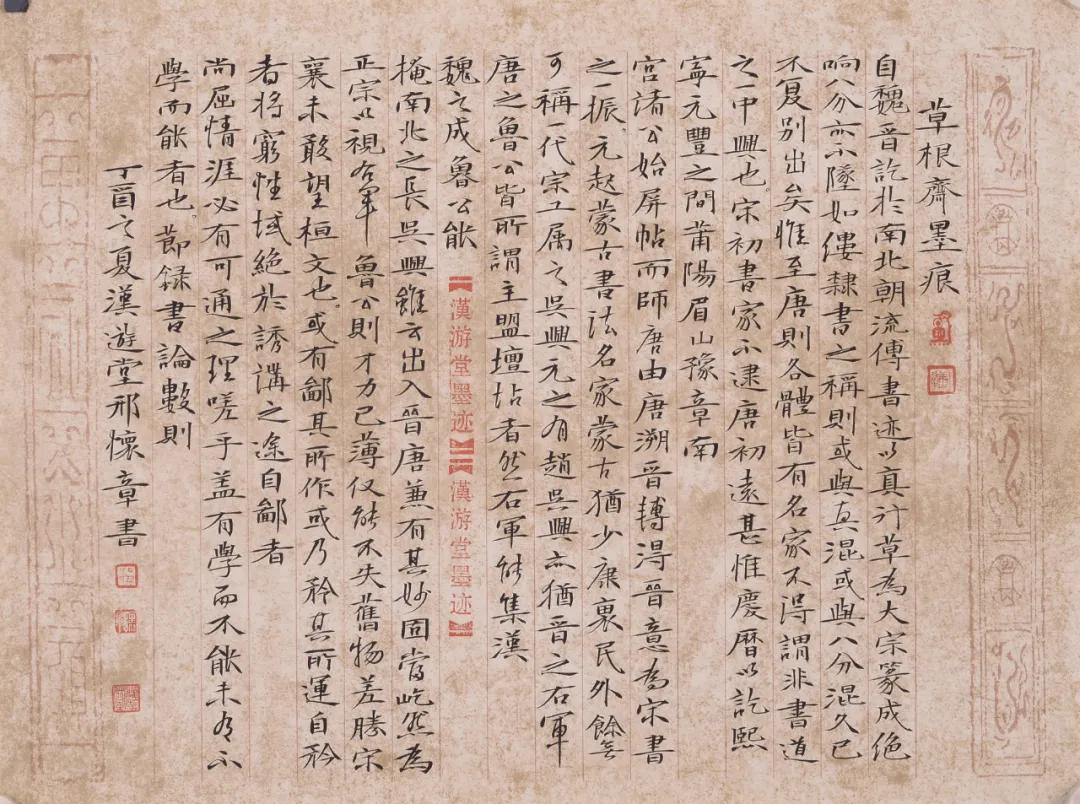 草根齋墨痕
自魏晉訖於南北朝流傳書迹以真行草為大宗篆成絶
响八分亦不墜如僂隸書之稱則或與真混或與八分混久已
不复別出矣惟至唐則各體皆有名家不得謂非書道
之一中興也宋初書家不逮唐初遠甚惟慶曆以訖熙
寧元豐之間莆陽眉山豫章南
宮諸公始屏帖而師唐由唐溯晉轉得晉意為宋書
之一振元起蒙古書法名家蒙古猶少康裏民外餘無
可稱一代宗工属之吳興元之有趙吳興亦猶晉之右軍
唐之魯公皆所謂主盟壇坫者然右軍能集漢
魏之成魯公能
【漢游堂墨迹】【漢游堂墨迹】
掩南北之長吳興雖云出入晉唐兼有其妙固當屹然為
正宗以視右軍魯公則才力已薄仅能不失舊物差勝宋
襄未敢望桓文也或有鄙其所作或乃矜其所運自矜
者將窮性域絶於誘講之途自鄙者
尚屈情涯必有可通之理嗟乎盖有學而不能未有不
學而能者也節録書論數則
丁酉之夏漢遊堂邢懷章書